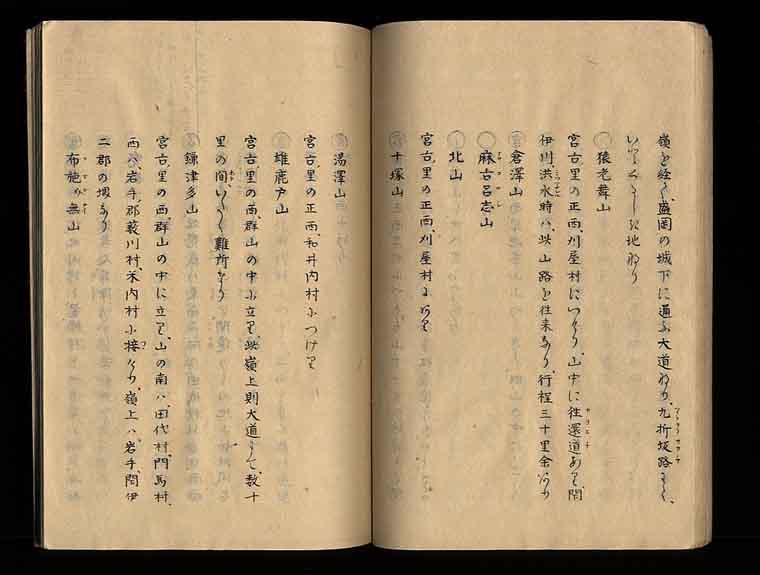 嶺を経て盛岡の城下に通ふ大道なり九折坂路
地なり
猿老舞山
宮古里の正西刈屋村につゝけり山中に往還道あり閇
伊川洪水時ハ此山路を往来なり行程三十里余
倉澤山
麻古呂志山
北山
宮古里の正西刈屋村にあり
十塚山
湯澤山
宮古里の正西和井内村につけり
雄鹿戸山
宮古里の西群山の中に立り此嶺上則大道にて数十
里の間 難所なり
鎌津多山
宮古里の西群山の中に立り山の南ハ田代村門馬村
西ハ岩手郡薮川村禾内村に接けり嶺上ハ岩手閇伊
二郡の堺なり
布施か無山